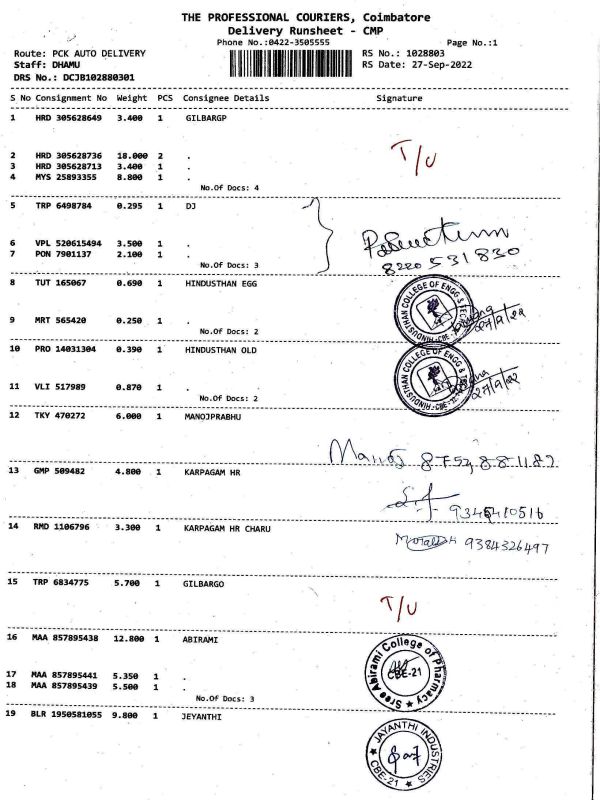 THE PROFESSIONAL COURIERS, Coimbatore
Delivery Runsheet - CMP
Phone No.:0422-3505555 Page No.:1
Route: PCK AUTO DELIVERY RS No.: 1028803
Staff: DHAMU RS Date: 27-Sep-2022
DRS No.: DCJB102880301
S No Consignment No Weight PCS Consignee Details Signature
1 HRD 305628649 3.400 1 GILBARGP
T/U
2 HRD 305628736 18.000 2 .
3 HRD 305628713 3.400 1 .
4 MYS 25893355 8.800 1 .
No.Of Docs: 4
5 TRP 6498784 0.295 1 DJ
6 VPL 520615494 3.500 1 .
7 PON 7901137 2.100 1 .
8220531830
No.Of Docs: 3
8 TUT 165067 0.690 1 HINDUSTHAN EGG
HINDUSTHAN COLLEGE OF ENGG & TECH
27/9/22
9 MRT 565420 0.250 1 .
No.Of Docs: 2
10 PRO 14031304 0.390 1 HINDUSTHAN OLD
HINDUSTHAN COLLEGE OF ENGG & TECH
27/9/22
11 VLI 517989 0.870 1 .
No.Of Docs: 2
12 TKY 470272 6.000 1 MANOJPRABHU
Manoj
13 GMP 509482 4.800 1 KARPAGAM HR
14 RMD 1106796 3.300 1 KARPAGAM HR CHARU
9384326497
15 TRP 6834775 5.700 1 GILBARGO
T/U
16 MAA 857895438 12.800 1 ABIRAMI
Sree Abirami College of Pharmacy
CBE-21
17 MAA 857895441 5.350 1 .
18 MAA 857895439 5.500 1 .
No.Of Docs: 3
19 BLR 1950581055 9.800 1 JEYANTHI
JAYANTHI INDUSTRIES
CBE-21